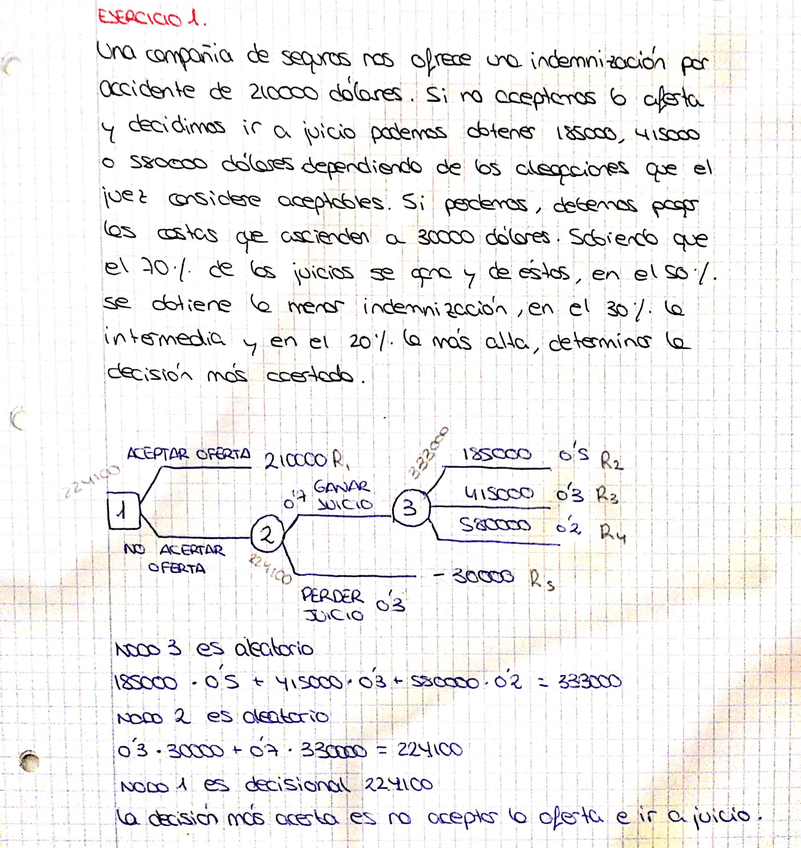 EJERCICIO 1.
Una compañía de seguros nos ofrece una indemnización por
accidente de 210000 dólares. Si no aceptamos la oferta
y decidimos ir a juicio podemos obtener 185000, 415000
o 580000 dólares dependiendo de las alegaciones que el
juez considere aceptables. Si perdemos, debemos pagar
las costas que ascienden a 30000 dólares. Sabiendo que
el 70%. de los juicios se gana y de éstos, en el 50%.
se obtiene la menor indemnización, en el 30%. la
intermedia y en el 20%. la más alta, determinar la
decisión más acertada.
224100
ACEPTAR OFERTA 210000 R1
1
NO ACEPTAR
OFERTA
2
224100
0'7 GANAR
JUICIO
333000
3
185000 0'5 R2
415000 0'3 R3
580000 0'2 R4
-30000 R5
PERDER
JUICIO 0'3
NODO 3 es aleatorio
185000 · 0'5 + 415000 · 0'3 + 580000 · 0'2 = 333000
NODO 2 es aleatorio
0'3 · 30000 + 0'7 · 330000 = 224100
NODO 1 es decisional 224100
La decisión más acerta es no aceptar la oferta e ir a juicio.